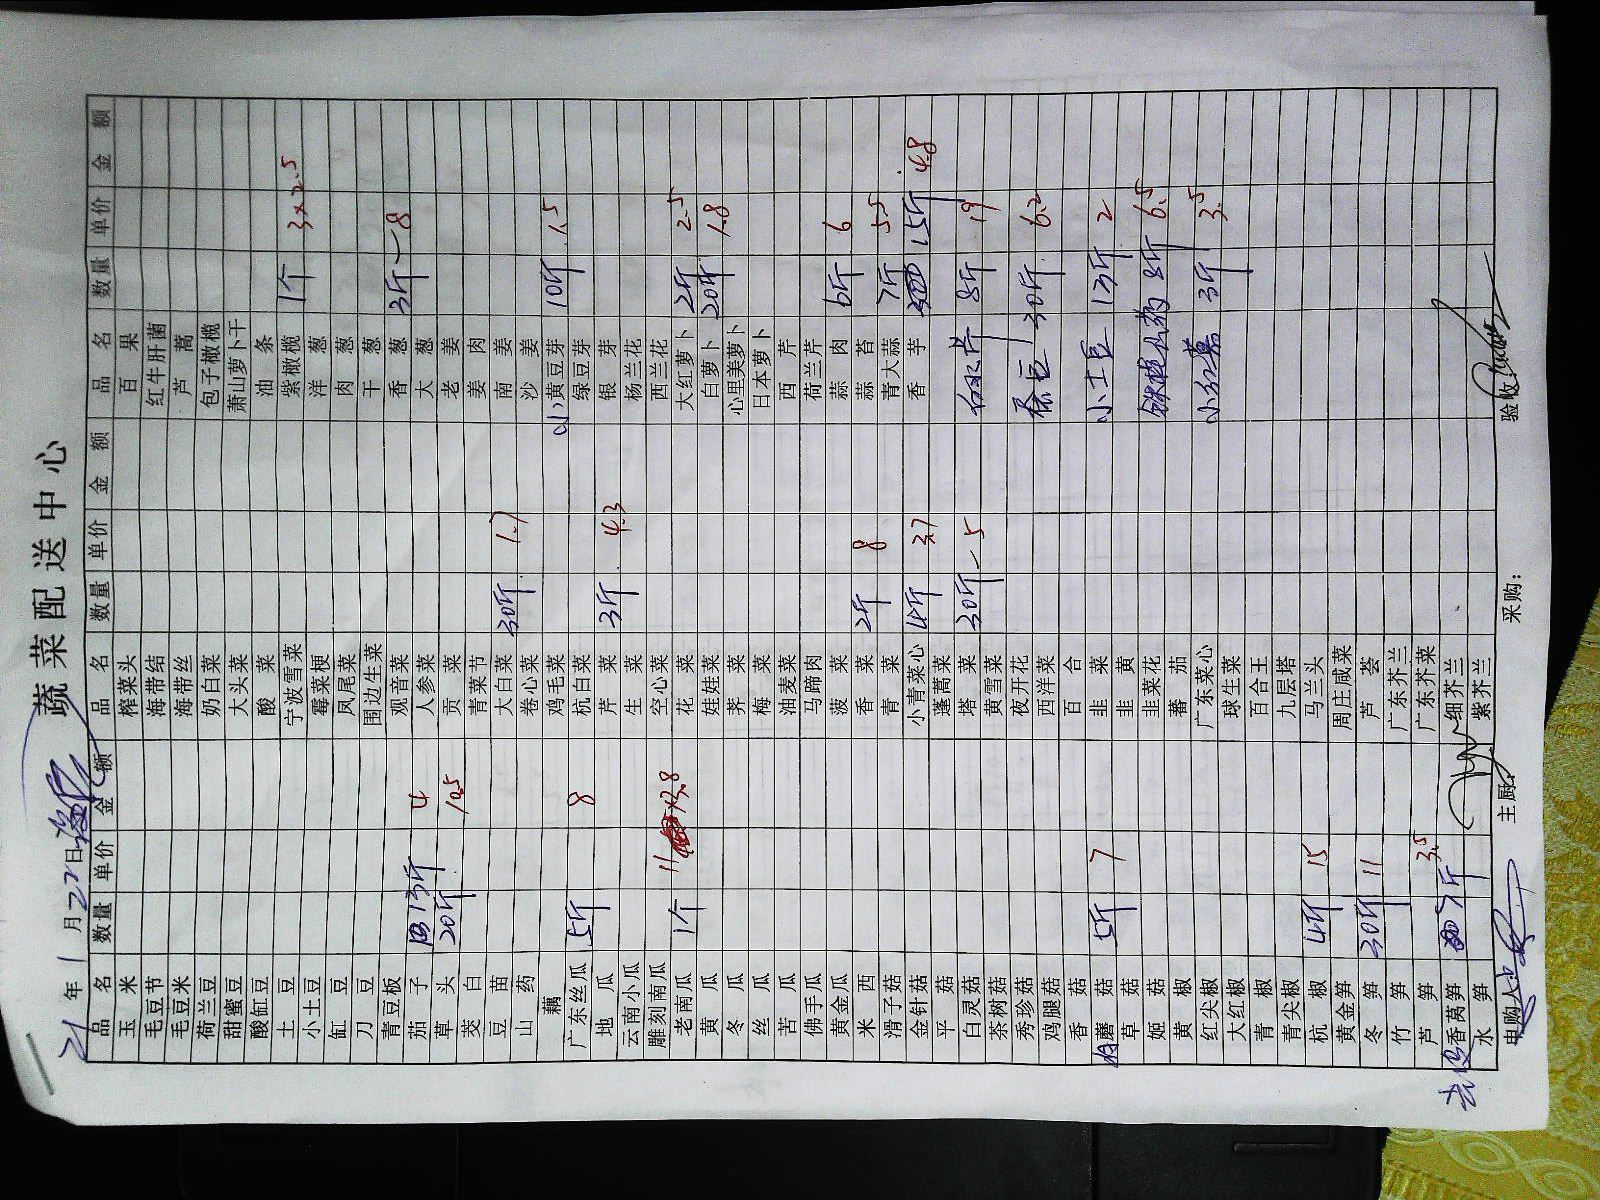 蔬菜配送中心
21年1月22日
品名 数量 单价 金额 品名 数量 单价 金额 品名 数量 单价 金额
玉米 榨菜头 百果
毛豆节 海带结 红牛肝菌
毛豆米 海带丝 芦蒿
荷兰豆 奶白菜 包子橄榄
甜蜜豆 大头菜 萧山萝卜干
酸缸豆 酸菜 油条
土豆 宁波雪菜 紫橄榄 1个 3×2.5
小土豆 霉菜梗 洋葱
缸豆 凤尾菜 肉葱
刀豆 围边生菜 干葱
青豆板 观音菜 香葱 3斤 8
茄子 13斤 4 人参菜 大葱
草头 20斤 10.5 贡菜 老姜
茭白 青菜节 姜肉
豆苗 大白菜 30斤 1.7 南姜
山药 卷心菜 沙姜
藕 鸡毛菜 小黄豆芽 10斤 1.5
广东丝瓜 5斤 8 杭白菜 绿豆芽
地瓜 芹菜 3斤 4.3 银芽
云南小瓜 生菜 杨兰花
雕刻南瓜 空心菜 西兰花
老南瓜 1个 11 ×3.8 花菜 大红萝卜 2斤 2.5
黄瓜 娃娃菜 白萝卜 20斤 1.8
冬瓜 荠菜 心里美萝卜
丝瓜 梅菜 日本萝卜
苦瓜 油麦菜 西芹
佛手瓜 马蹄肉 荷兰芹
黄金瓜 菠菜 蒜肉 6斤 6
米西 香菜 2斤 8 蒜苔
滑子菇 青菜 青大蒜 7斤 5.5
金针菇 小青菜心 4斤 3.7 香芋 15斤 4.8
平菇 蓬蒿菜
白灵菇 塔菜 30斤 5 水芹 8斤 9
茶树菇 黄雪菜
秀珍菇 夜开花
鸡腿菇 西洋菜 30斤 6.2
香菇 百合
蘑菇 5斤 7 韭菜 小土豆 13斤 2
草菇 韭黄
姬菇 韭菜花 铁棍山药 8斤 6.5
黄椒 蕃茄
红尖椒 广东菜心 3斤 3.5
大红椒 球生菜
青椒 百合王
青尖椒 九层塔
杭椒 4斤 15 马兰头
黄金笋 周庄咸菜
冬笋 30斤 11 芦荟
竹笋 广东芥兰
芦笋 广东芥菜
香莴笋 7斤 3.5 细芥兰
水笋 紫芥兰
申购人: 主厨: 采购: 验收: